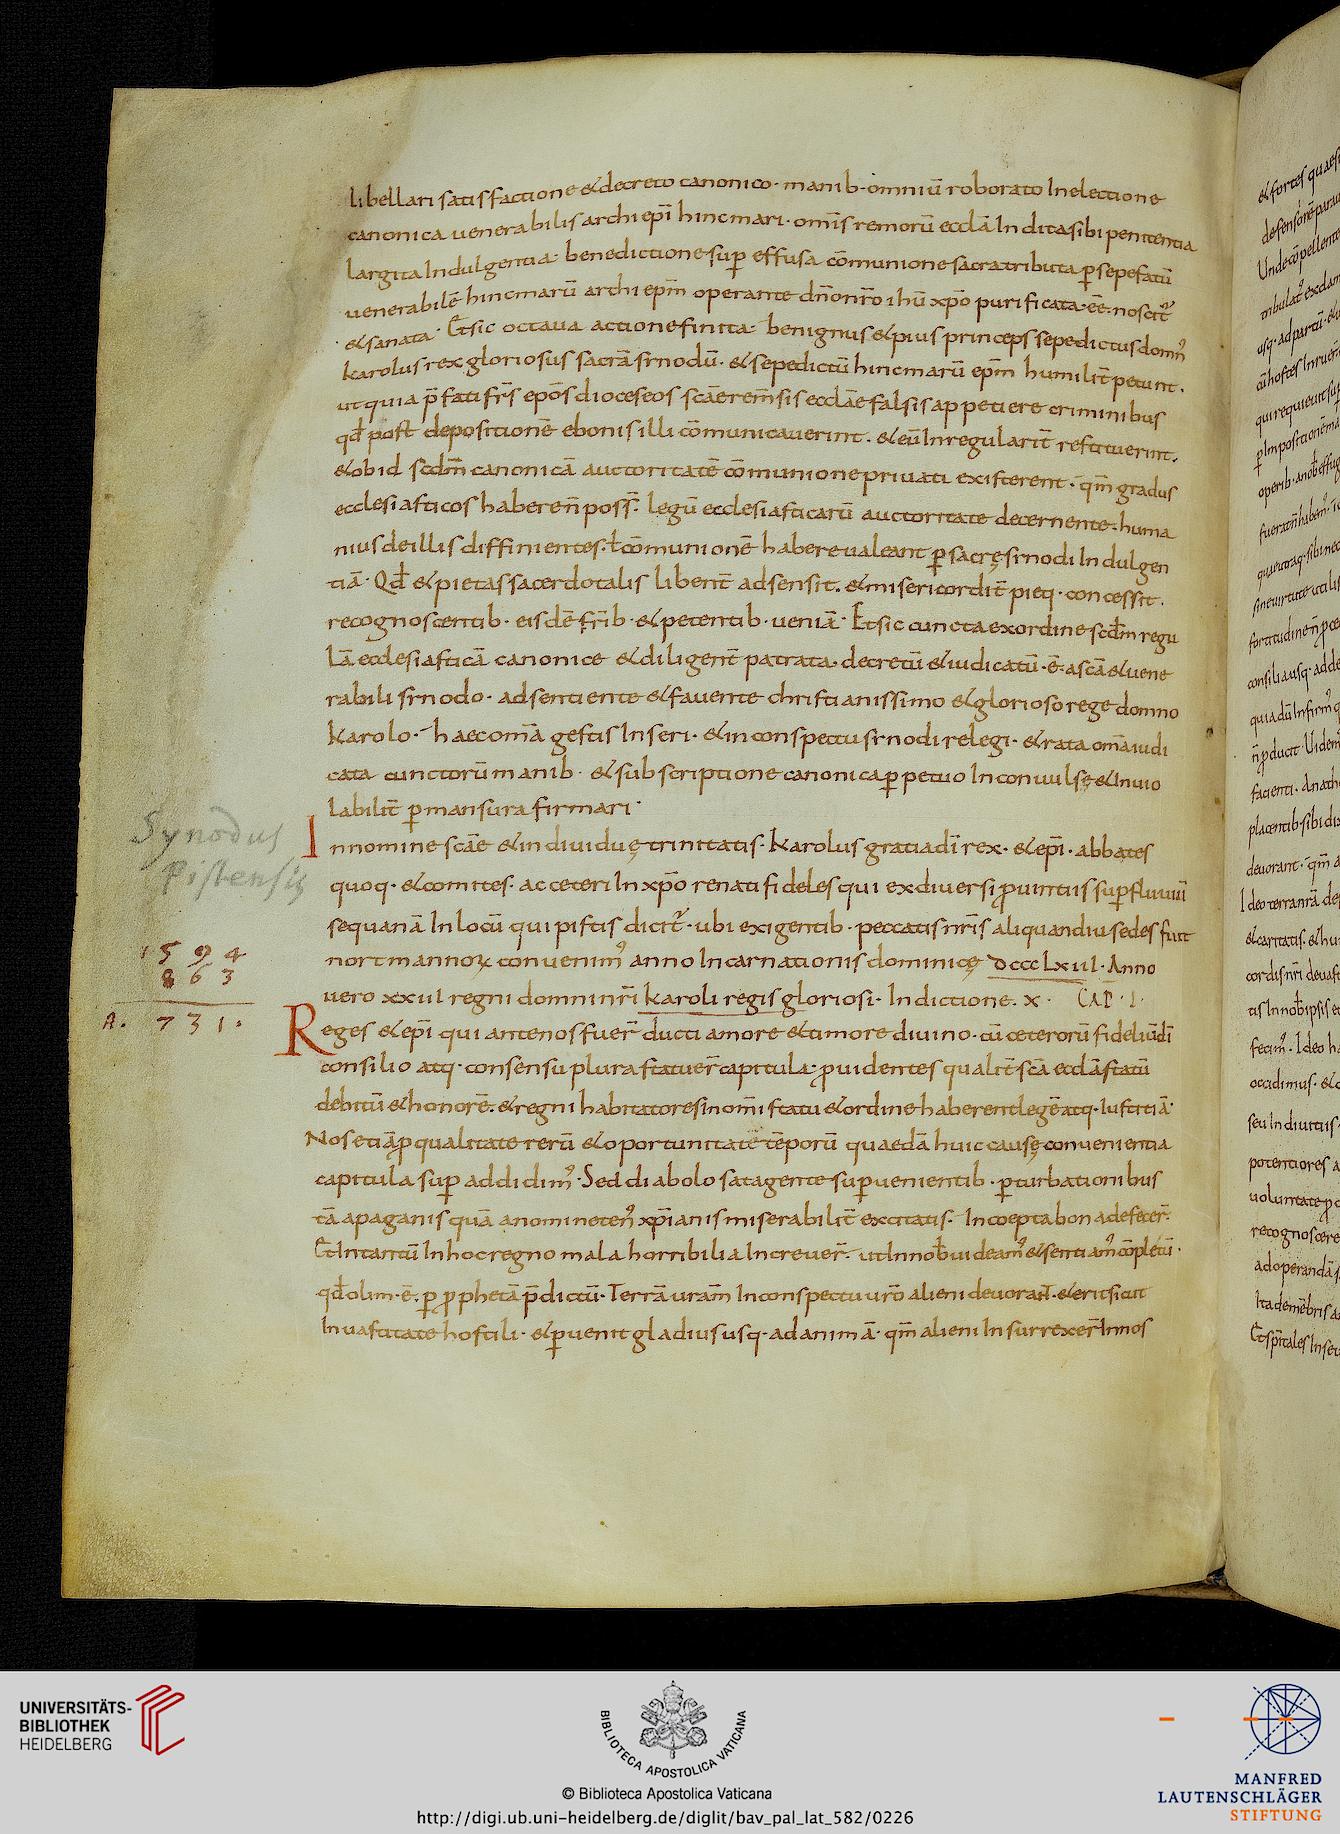 libellari satisfactione & decreto canonico· manib· omniū roborato In electione
canonica uenerabilis archiepi̅ hincmari· omīs remorū ecclā In dita sibi penitentia
largita Indulgentia· benedictione sup̱ effusa cōmunione sacra tributa p̱ sepefatū
uenerabilē hincmarū archiepm̄ operante dn̄o nr̄o ihū xpo̅ purificata· ēē· noscit᷒
& sanata· Et sic octaua actione finita· benignus & pius princeps sepedictus domn᷒
karolus rex gloriosus sacrā sinodū· & sepedictū hincmarū epm̄ humilit̄ petunt·
ut quia p̄fati fr̄s epōs dioceseos scāe remsīs ecclāe falsis appetiere criminibus
qd̄ post depositionē ebonis illi cōmunicauerint· & eū Inregularit̄ restituerint·
& ob id scdm̄ canonicā auctoritatē cōmunione priuati existerent· qm̄ gradus
ecclesiasticos haberen̄ poss̄· legū ecclesiasticarū auctoritate decernente· huma
nius de illis diffinientes· ł cōmunionē habere ualeant p̱ sacrę sinodi Indulgen
tiā· Qd̄ & pietas sacerdotalis libent̄ adsensit· & misericordit̄ pieq· concessit·
recognoscentib· eisdē frīb· & petentib· ueniā· Et sic cuncta ex ordine scdm̄ regu
lā ecclesiasticā canonice & diligent̄ patrata· decretū & iudicatū· ē· a scā & uene
rabili sinodo· adsentiente & fauente christianissimo & glorioso rege domno
karolo· haec omīa gestis Inseri· & in conspectu sinodi relegi· & rata omīa iudi
cata cunctorū manib· & subscriptione canonica p̱petuo Inconuulsę & Inuio
labilit̄ p̱mansura firmari·
Synodus
Pistensis
In nomine scāe & indiuiduę trinitatis· karolus gratia dī rex· & epī· abbates
quoq· & comites· ac ceteri In xpo̅ renati fideles qui ex diuersi p̱uintiis sup̱ fluuiū
sequanā In locū qui pistis dicit᷒· ubi exigentib· peccatis nrīs aliquandiu sedes fuit
nortmannoꝝ conuenim᷒ anno Incarnationis dominicę dccclxiil· Anno
uero xxiil regni domni nrī karoli regis gloriosi· Indictione· x· CAP· I·
1594
863
A. 731.
Reges & epī qui ante nos fuer̄ ducti amore & timore diuino· cū ceterorū fideliū dī
consilio atq· consensu plura statuer̄ capitula· p̱uidentes qualit̄ scā ecclā statū
debitū & honorē· & regni habitatores In omī statu & ordine haberent legē atq· Iustitiā·
Nos etiā p̱ qualitate rerū & oportunitatē tēporū quaedā huic causę conuenientia
capitula sup̱addidim᷒· Sed diabolo satagente sup̱uenientib· p̱turbationibus
tā a paganis quā a nominetēn᷒ xpīanis miserabilit̄ excitatis· Incoepta bona defecer̄·
Et Intantū In hoc regno mala horribilia Increuer̄· ut In nob̄ uideam᷒ & sentiam᷒ cōpletū·
qd̄ olim· ē· p̱ p̱phetā p̄dictū· Terrā uram̄ In conspectu uro̅ alieni deuorant· & erit sicut
In uastitate hostili· & p̱uenit gladius usq· ad animā· qm̄ alieni Insurrexer̄ In nos
UNIVERSITÄTS-
BIBLIOTHEK
HEIDELBERG
BIBLIOTECA APOSTOLICA VATICANA
© Biblioteca Apostolica Vaticana
http://digi.ub.uni-heidelberg.de/diglit/bav_pal_lat_582/0226
MANFRED
LAUTENSCHLÄGER
STIFTUNG